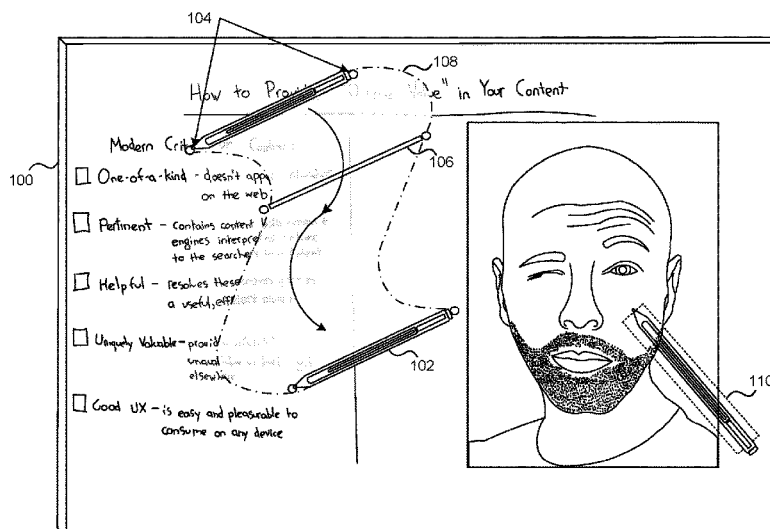 104
108
How to Provi Value" in Your Content
100
Modern Crit
106
One-of-a-kind - doesn't app
on the web
Pertinent - contains content
engines interpre
to the searche
Helpful - resolves these
a useful, eff
Uniquely Valuable - provid
unusual
elsewhere
102
110
Good UX - is easy and pleasurable to
consume on any device